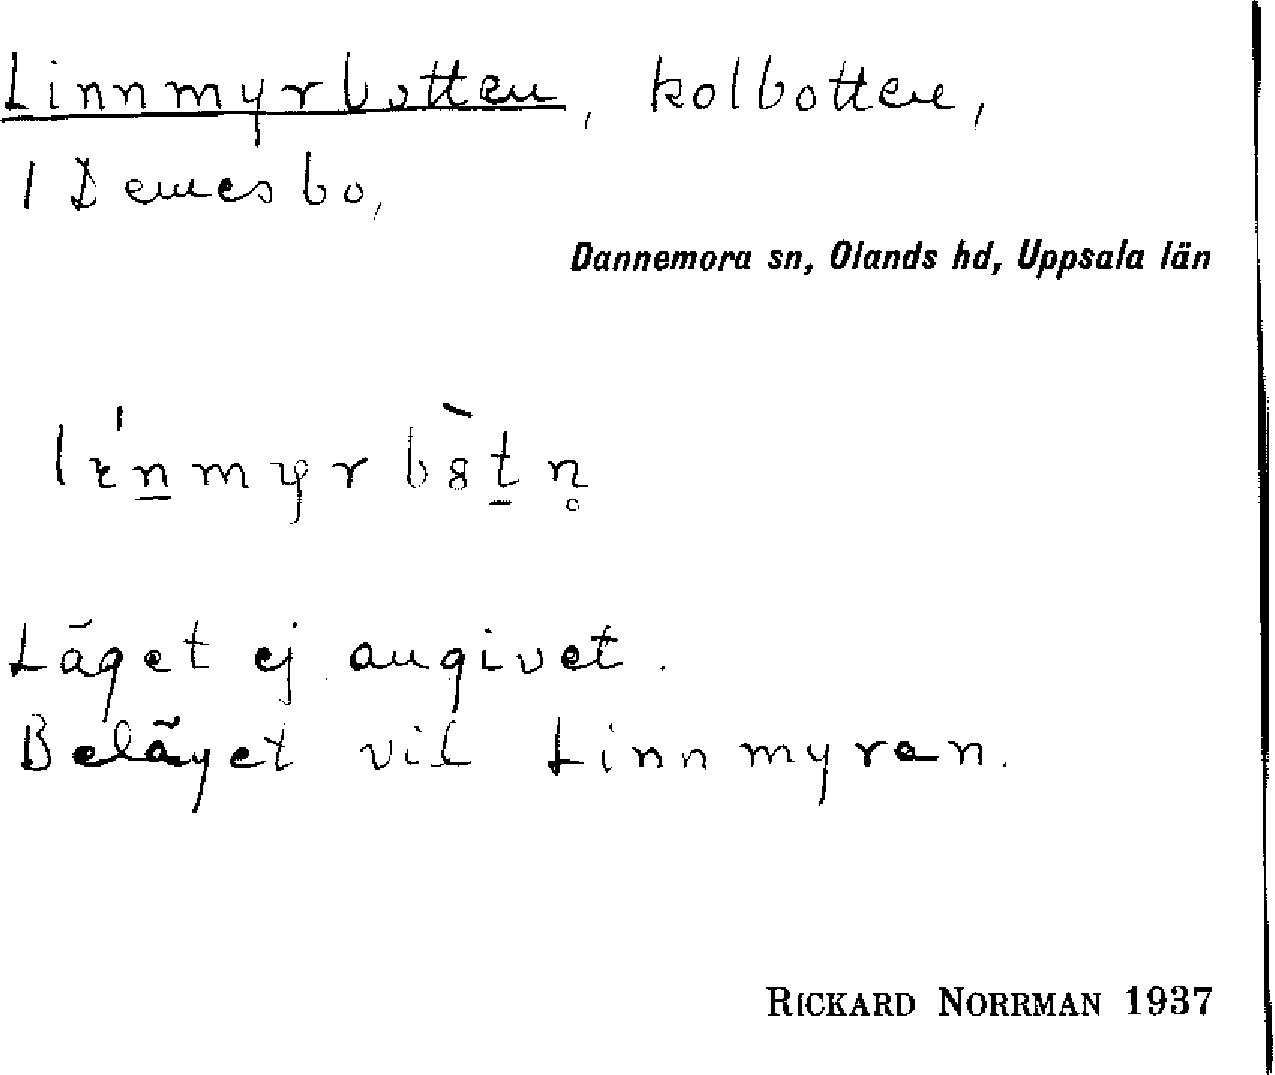 Linnmyrbotten, kolbotten,
1 Demesbo,
Dannemora sn, Olands hd, Uppsala län
Läget ej angivet.
Beläget vid Linnmyran.
RICKARD NORRMAN 1937